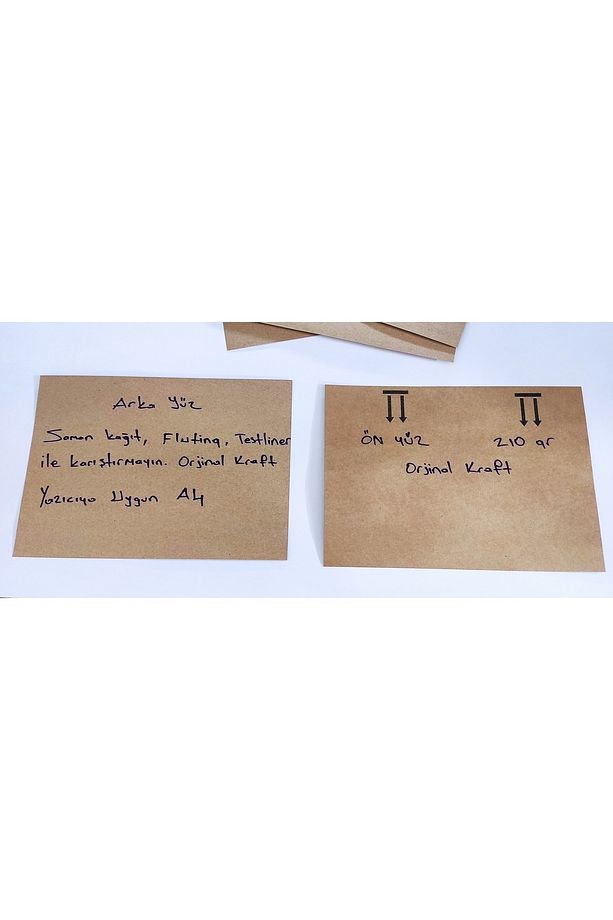 Arka Yüz
Saman kağıt, Fluting, Testliner
ile karıştırmayın. Orjinal Kraft
Yazıcıya Uygun A4
ÖN YÜZ
210 gr
Orjinal Kraft